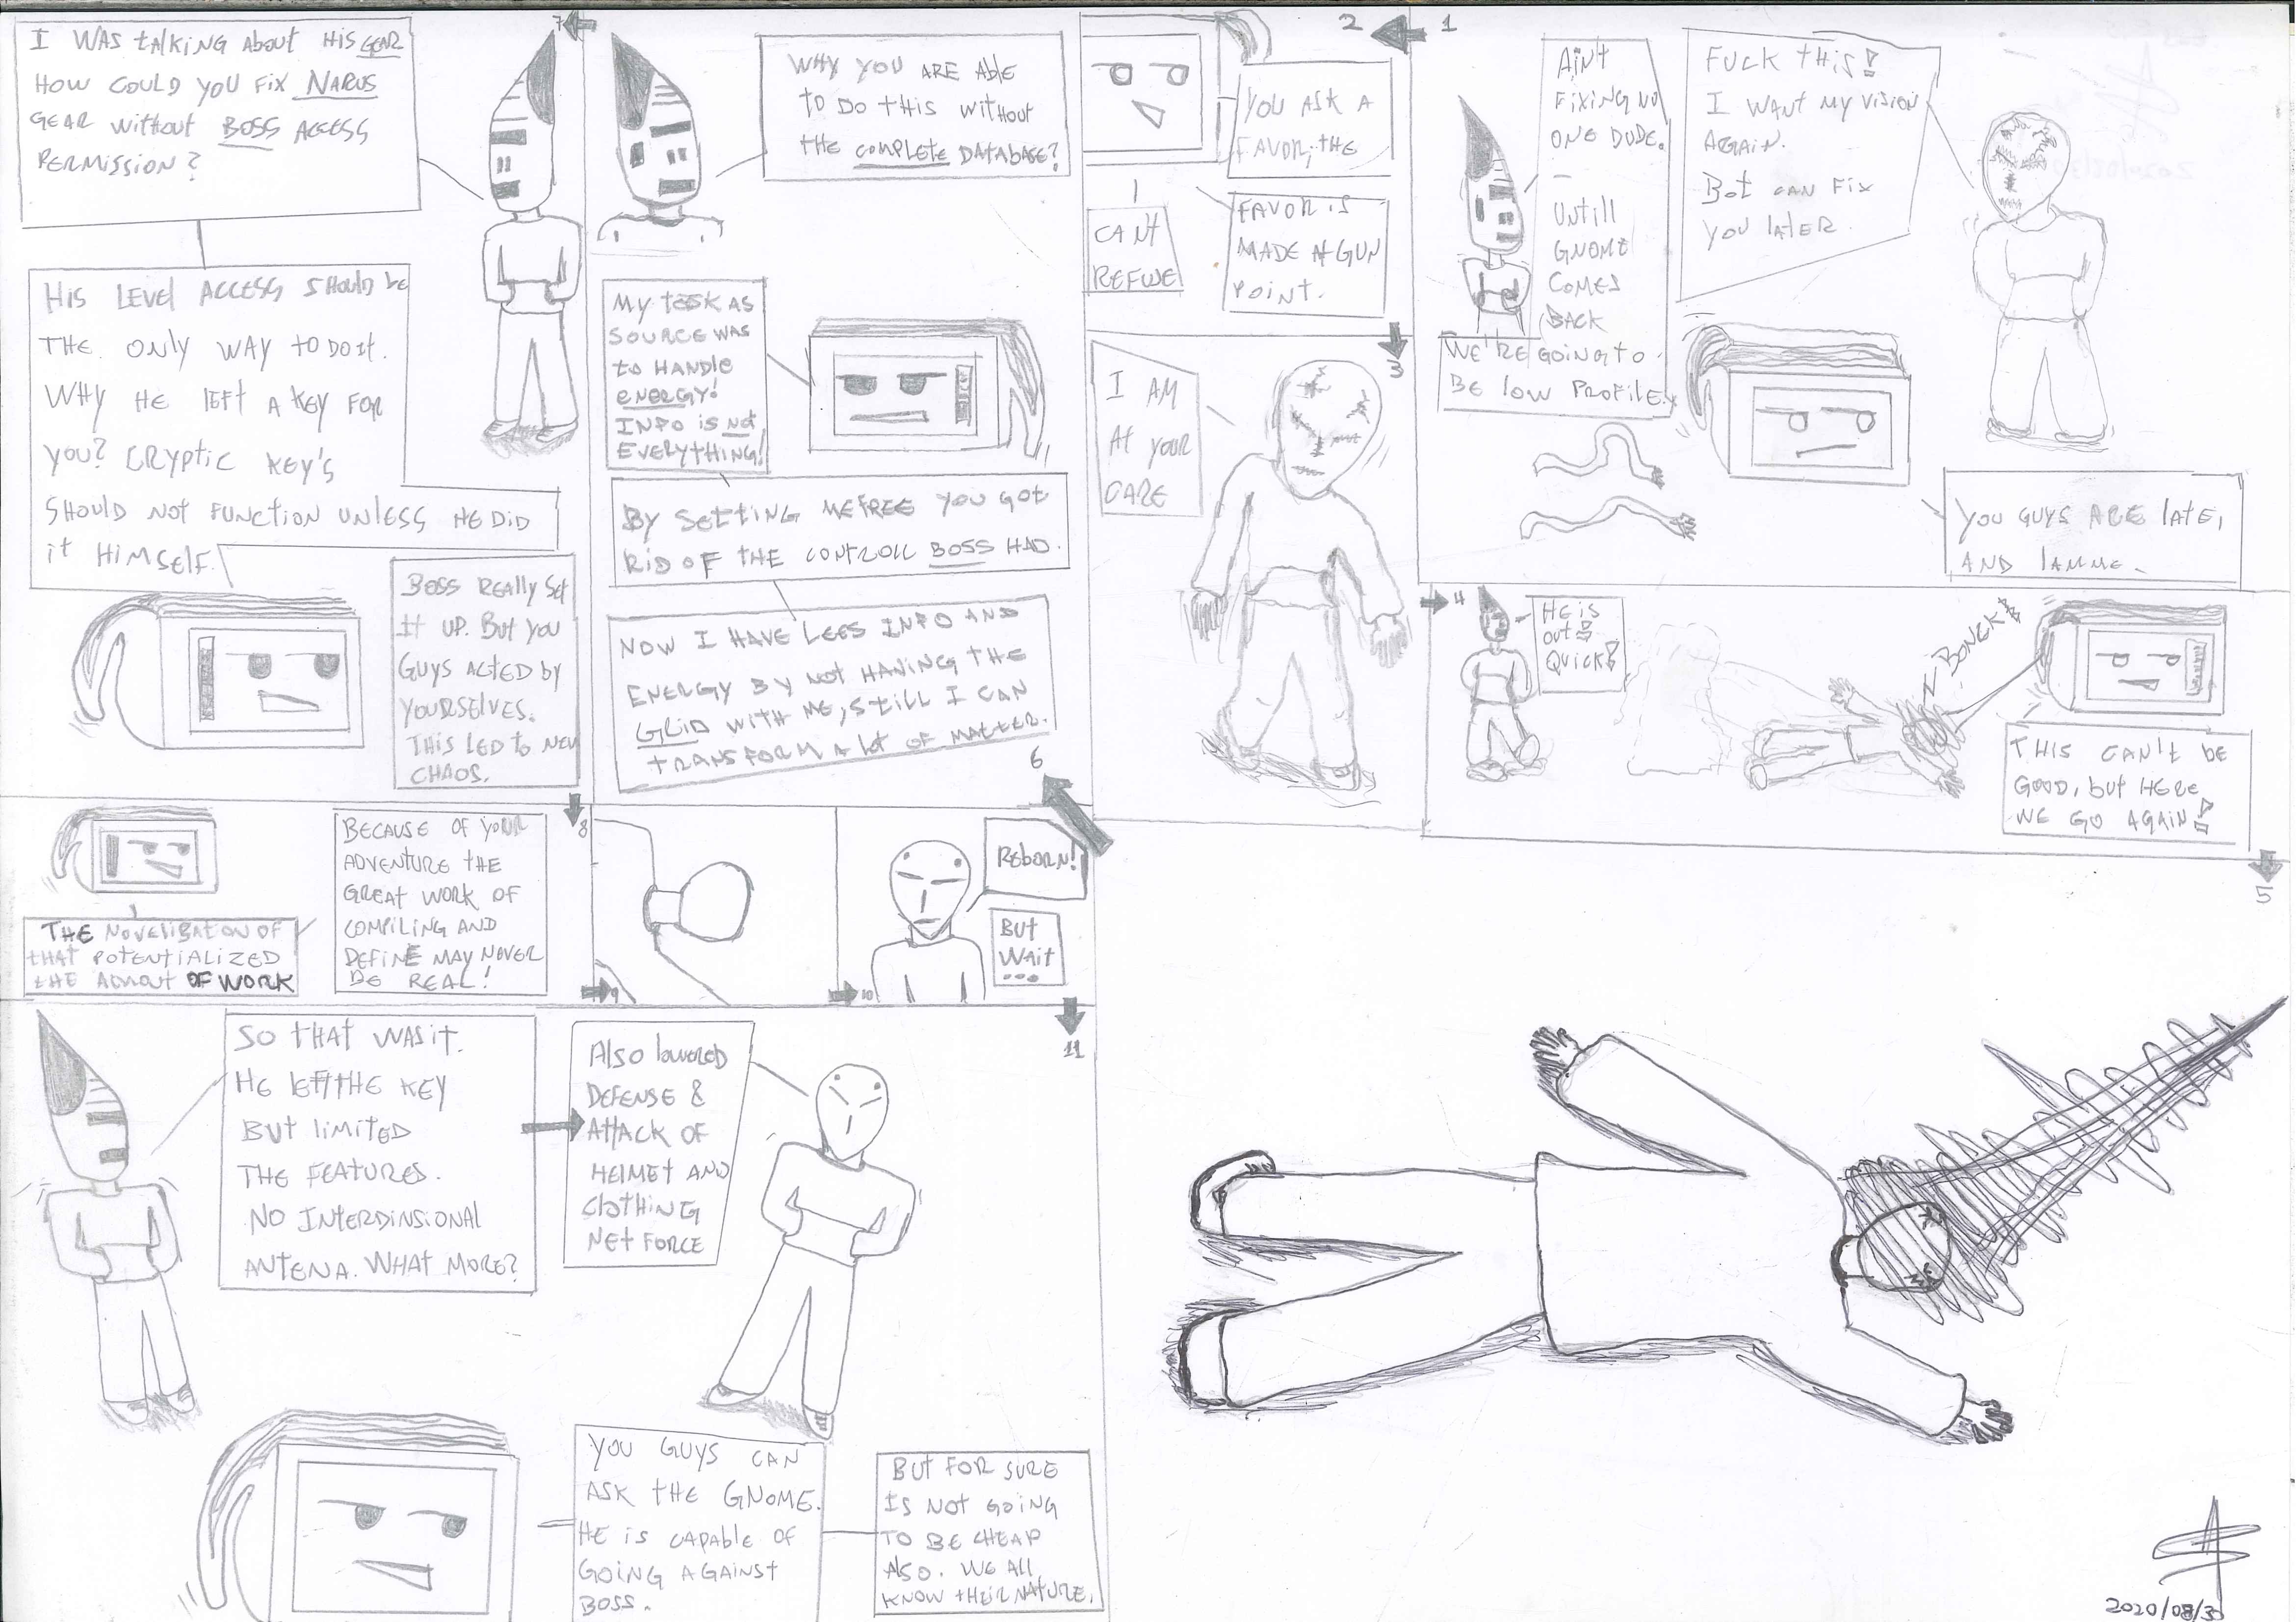 1
Ain't
Fixing no
one dude.
—
Untill
Gnome
comes
back
we're going to
be low profile.
Fuck this!
I want my vision
again.
Bot can fix
you later.
You guys are late,
and lamme.
2
You ask a
favor, the
favor is
made at gun
point.
Can't
refuse
3
I am
at your
care
4
He is
out!
Quick!
Bonck!
This can't be
good, but here
we go again!
5
6
Why you are able
to do this without
the complete database?
My task as
source was
to handle
energy!
Info is not
everything!
By setting me free you got
rid of the controll Boss had.
Now I have lees info and
energy by not having the
Grid with me, still I can
transform a lot of matter.
7
I was talking about his gear
How could you fix Narus
gear without Boss access
permission?
His level access should be
the only way to do it.
Why he left a key for
you? Cryptic key's
should not function unless he did
it himself.
Boss really set
it up. But you
guys acted by
yourselves.
This led to new
chaos.
8
Because of your
adventure the
great work of
compiling and
define may never
be real!
The novelization of
that potentialized
the amout of work
9
10
Reborn!
But
wait
...
11
So that was it.
He left the key
but limited
the features.
No interdinsional
antena. What more?
Also lowered
defense &
attack of
helmet and
clothing
net force
You guys can
ask the gnome.
He is capable of
going against
Boss.
But for sure
is not going
to be cheap
also. We all
know their nature.